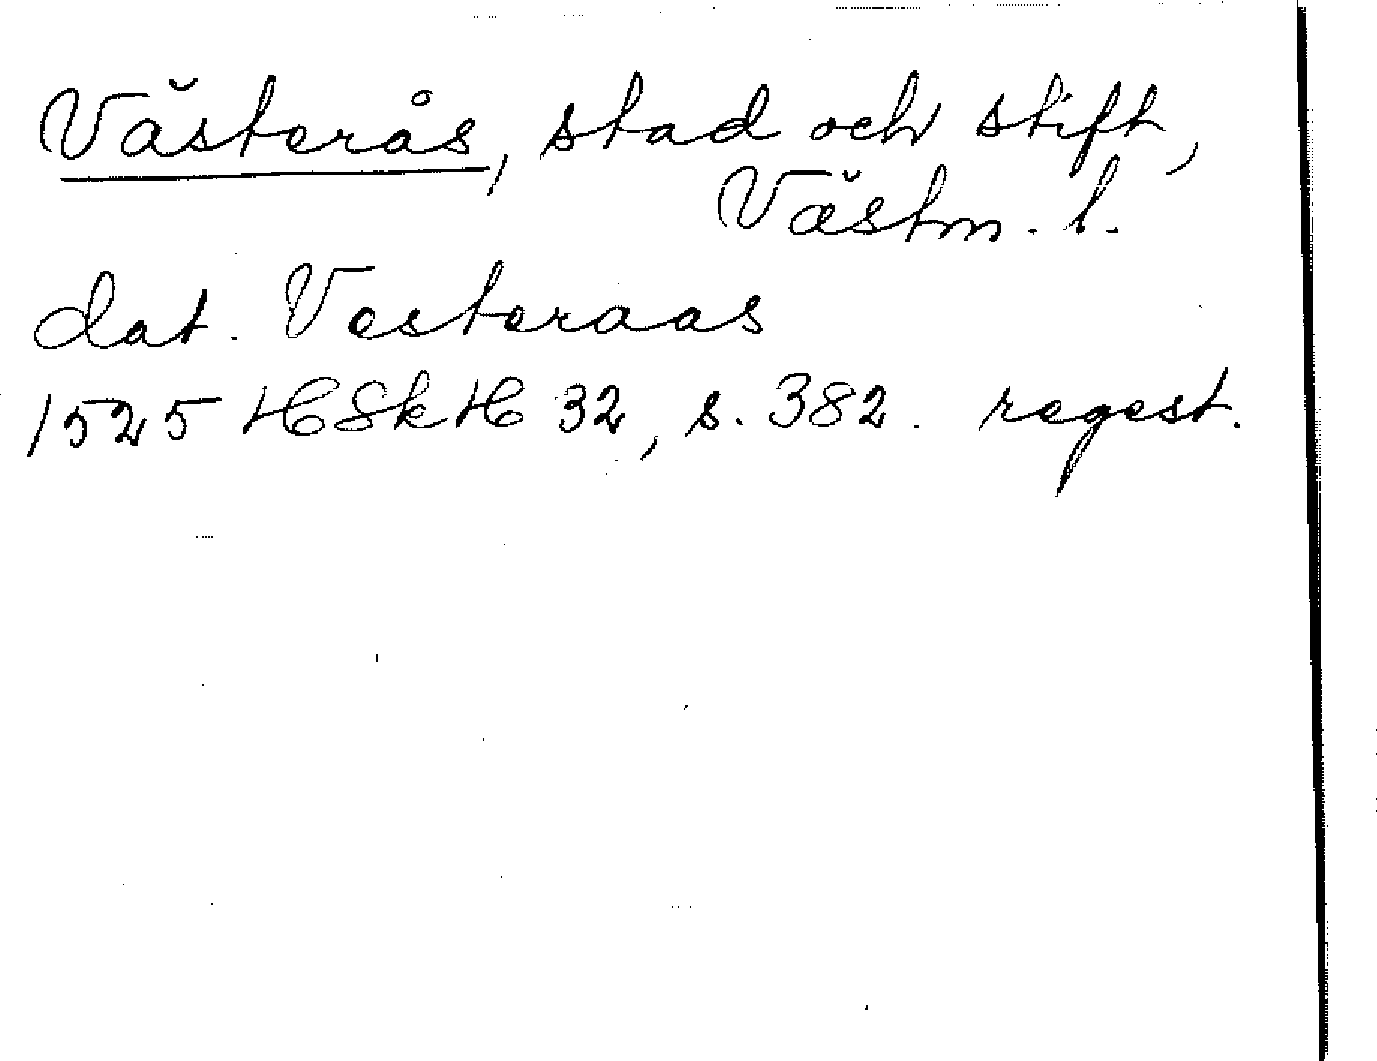 Västerås, stad och stift,
Västm. l.
dat. Vesteraas
1525 HSkH 32, s. 382. regest.